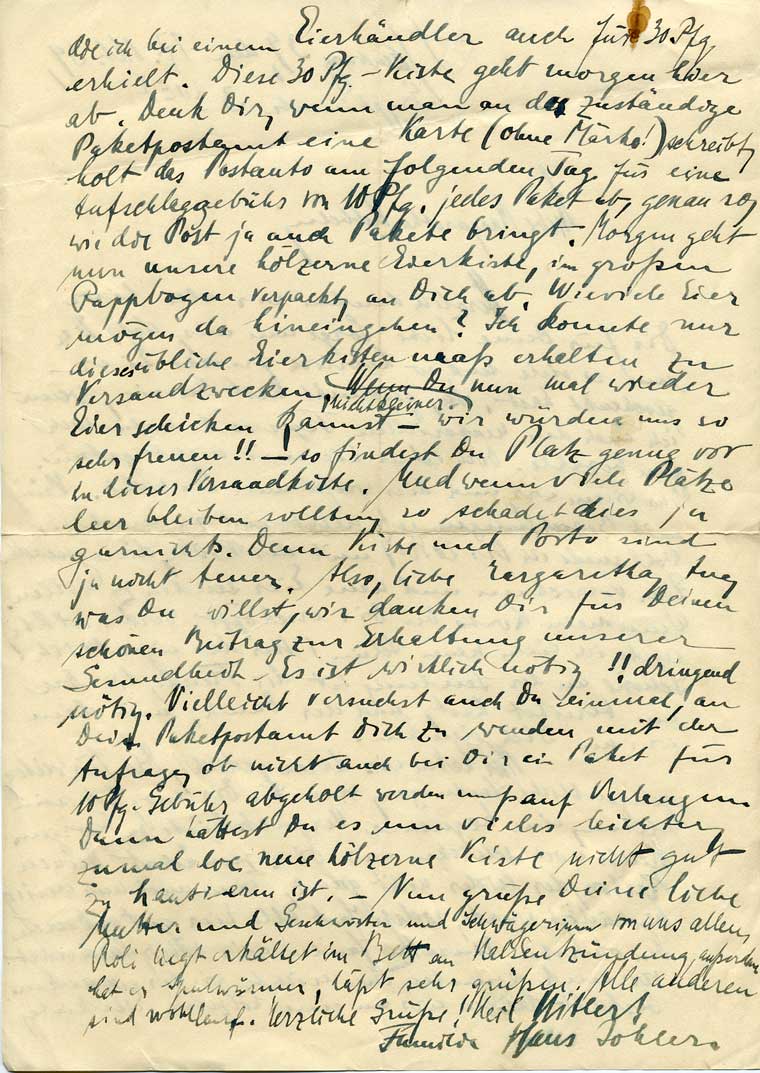 die ich bei einem Eierhändler auch für 30 Pfg.
erhielt. Diese 30 Pfg.-Kiste geht morgen hier
ab. Denk Dir, wenn man an das zuständige
Paketpostamt eine Karte (ohne Marke!) schreibt,
holt das Postauto am folgenden Tag für eine
Aufschlaggebühr von 10 Pfg. jedes Paket ab, genau so,
wie die Post ja auch Pakete bringt. Morgen geht
nun unsere hölzerne Eierkiste, im großen
Pappbogen verpackt, an Dich ab. Wieviele Eier
mögen da hineingehen? Ich konnte nur
dieses übliche Eierkistenmaaß erhalten zu
Versandzwecken, nicht kleiner. Wenn Du nun mal wieder
Eier schicken kannst – wir würden uns so
sehr freuen!! – so findest Du Platz genug vor
in dieser Versandkiste. Und wenn viele Plätze
leer bleiben sollten, so schadet dies ja
garnichts. Denn Kiste und Porto sind
ja nicht teuer. Also, liebe Margaretha, tue,
was Du willst, wir danken Dir für Deinen
schönen Beitrag zur Erhaltung unserer
Gesundheit. Es ist wirklich nötig!! dringend
nötig. Vielleicht versuchst auch Du einmal, an
Dein Paketpostamt Dich zu wenden mit der
Anfrage, ob nicht auch bei Dir ein Paket für
10 Pfg. Gebühr abgeholt werden muß auf Verlangen.
Dann hättest Du es um vieles leichter,
zumal die neue hölzerne Kiste nicht gut
zu hantieren ist. – Nun grüße Deine liebe
Mutter und Geschwister und Schwägerinnen von uns allen,
Rolf liegt erkältet im Bett an Halsentzündung, außerdem
hat er Spulwürmer, läßt sehr grüßen. Alle anderen
sind wohlauf. Herzliche Grüße! Heil Hitler!
Familie Hans